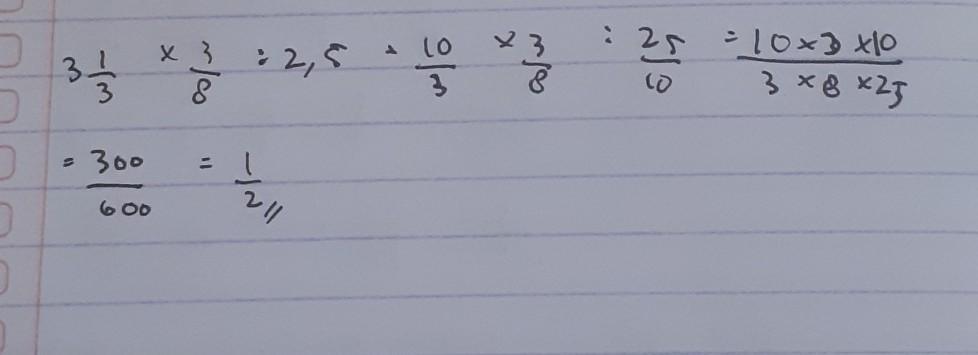 3 1/3 × 3/8 : 2,5 = 10/3 × 3/8 : 25/10 = 10×3×10/3×8×25
= 300/600 = 1/2 //